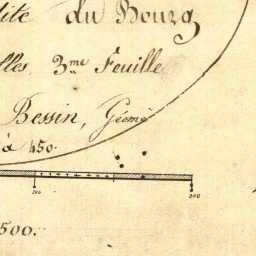 dite du Bourg
lles, 3.me Feuille
Bessin, Géom.
à 450.
100 200
500.